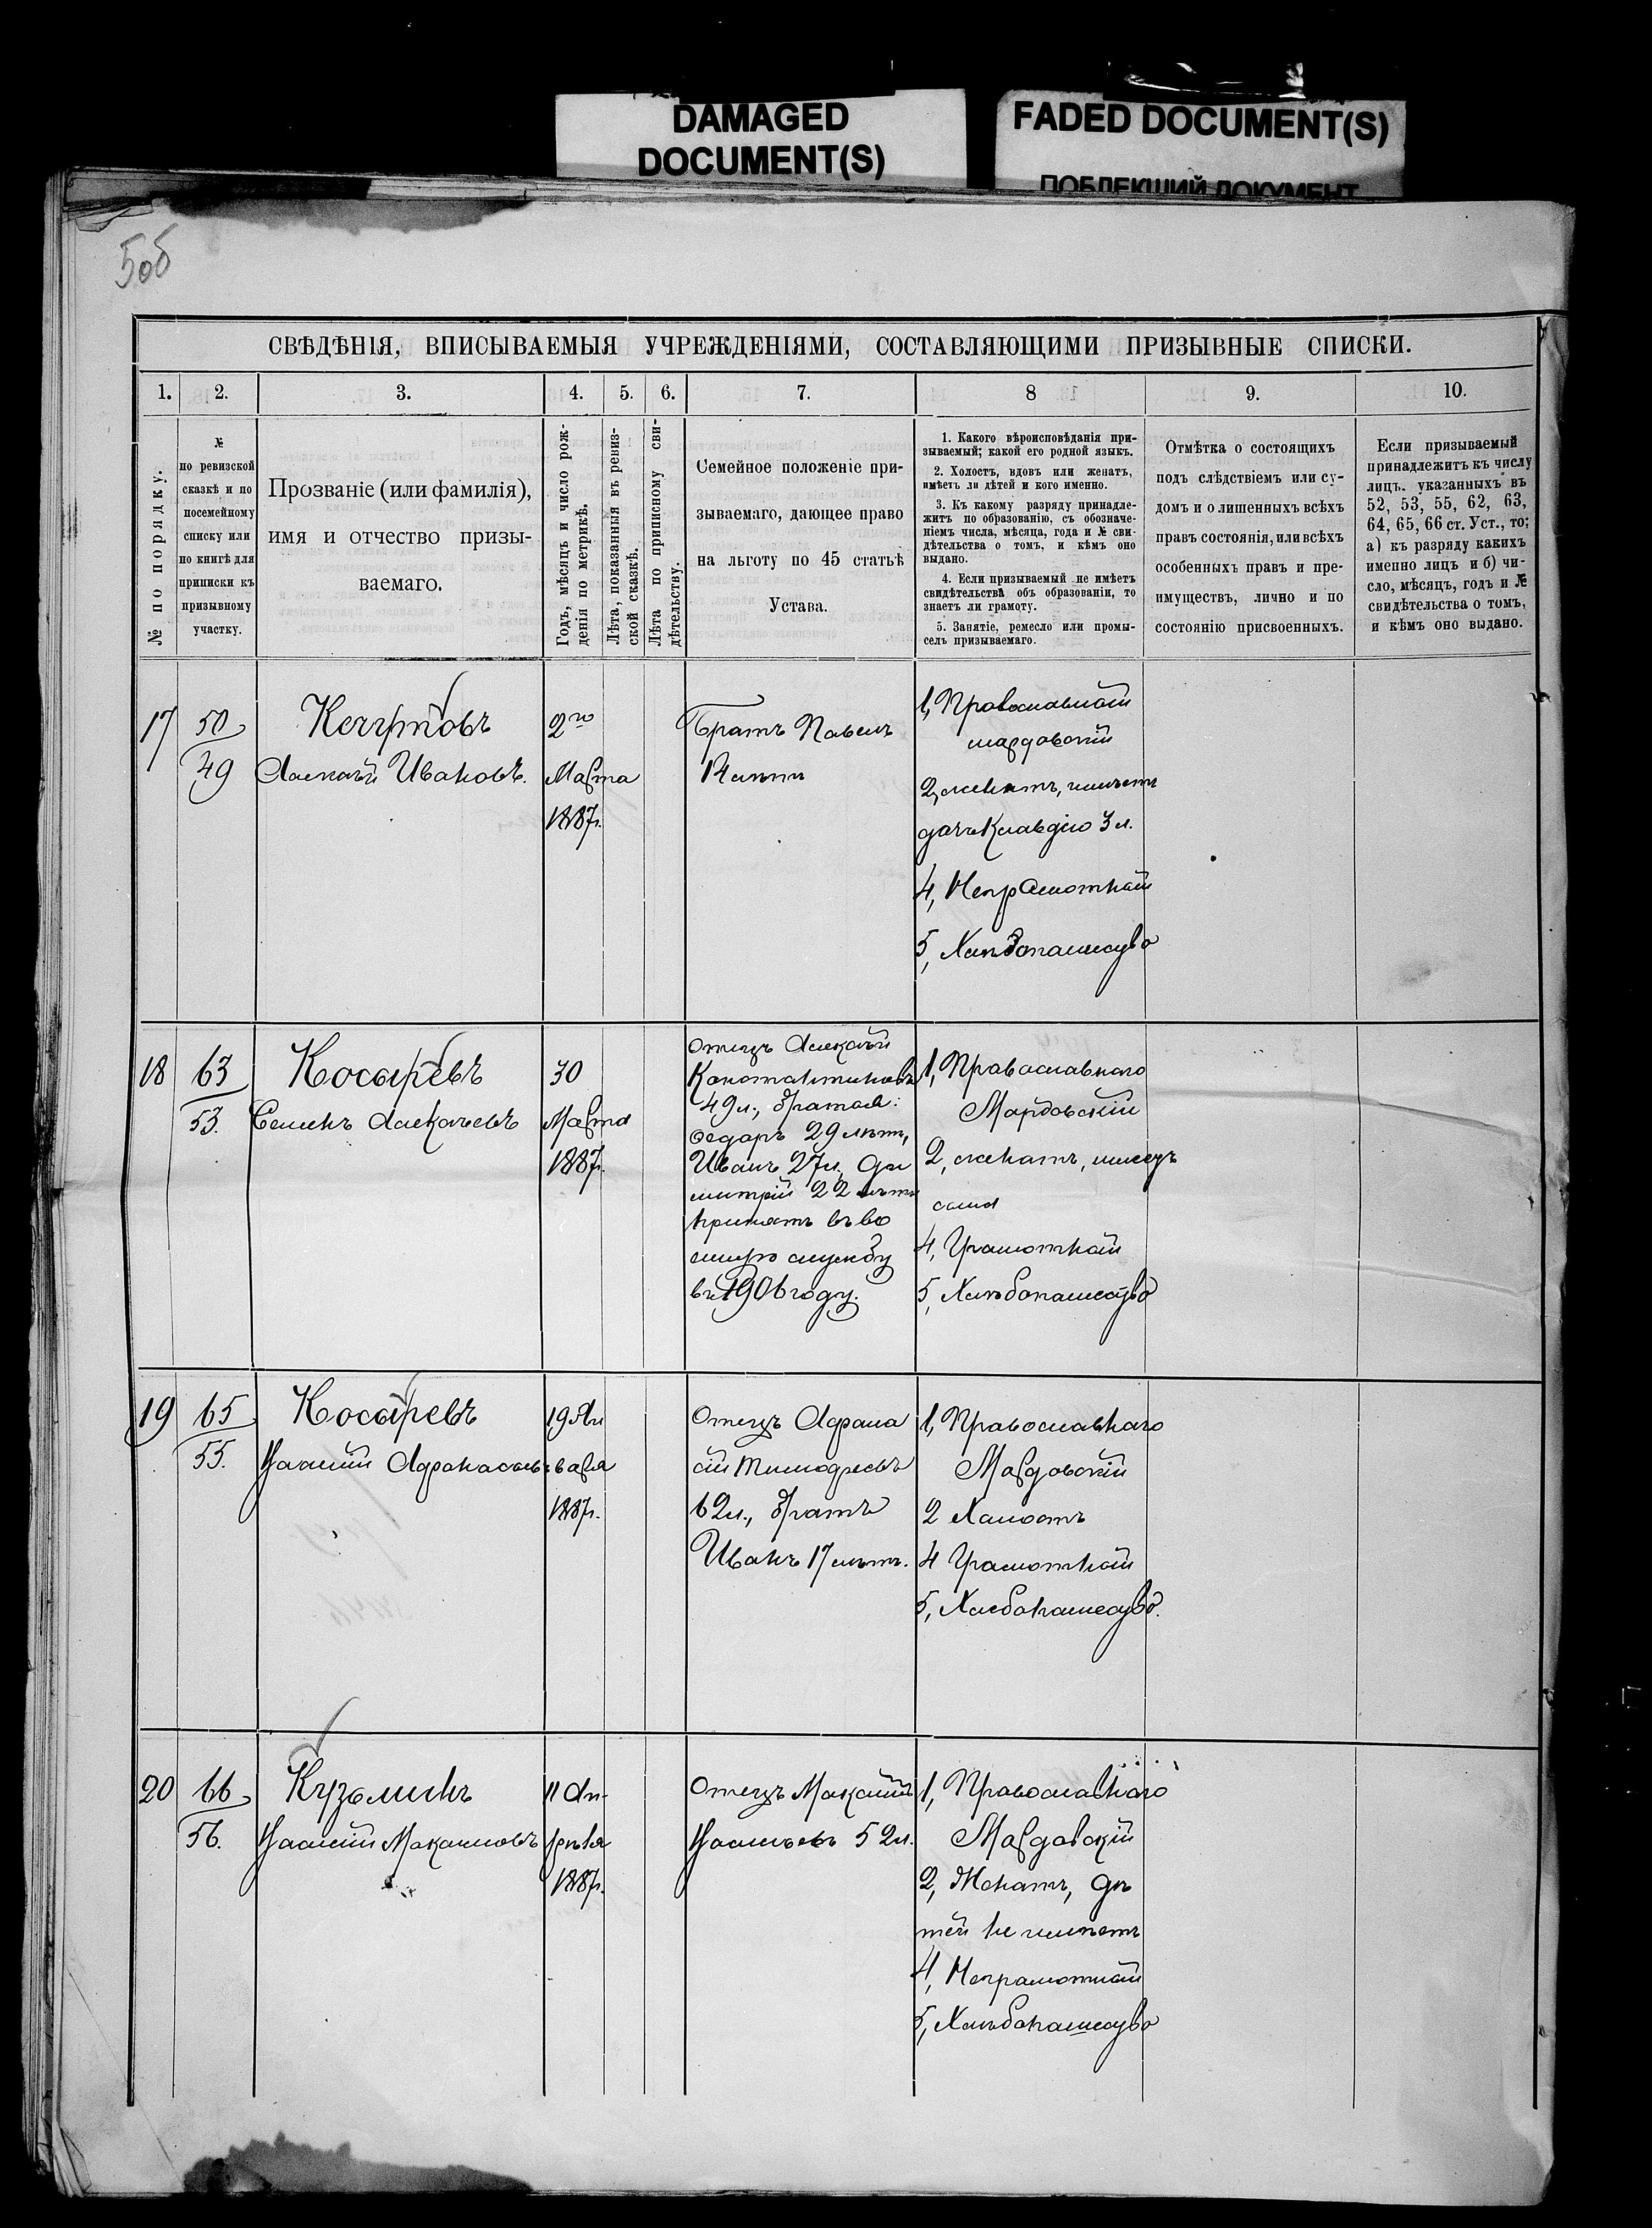 DAMAGED
DOCUMENT(S)
FADED DOCUMENT(S)
ПОБЛЕКШИЙ ДОКУМЕНТ
50б
СВѢДѢНІЯ, ВПИСЫВАЕМЫЯ УЧРЕЖДЕНІЯМИ, СОСТАВЛЯЮЩИМИ ПРИЗЫВНЫЕ СПИСКИ.
1. 2. 3. 4. 5. 6. 7. 8 9. 10.
№ по порядку.
№
по ревизской
сказкѣ и по
посемейному
списку или
по книгѣ для
приписки къ
призывному
участку.
Прозваніе (или фамилія),
имя и отчество призы-
ваемаго.
Годъ, мѣсяцъ и число рож-
денія по метрикѣ.
Лѣта, показанныя въ ревиз-
ской сказкѣ.
Лѣта по приписному сви-
дѣтельству.
Семейное положеніе при-
зываемаго, дающее право
на льготу по 45 статьѣ
Устава.
1. Какого вѣроисповѣданія при-
зываемый; какой его родной языкъ.
2. Холостъ, вдовъ или женатъ,
имѣетъ ли дѣтей и кого именно.
3. Къ какому разряду принадле-
житъ по образованію, съ обозначе-
ніемъ числа, мѣсяца, года и № сви-
дѣтельства о томъ, и кѣмъ оно
выдано.
4. Если призываемый не имѣетъ
свидѣтельства объ образованіи, то
знаетъ ли грамоту.
5. Занятіе, ремесло или промы-
селъ призываемаго.
Отмѣтка о состоящихъ
подъ слѣдствіемъ или су-
домъ и о лишенныхъ всѣхъ
правъ состоянія, или всѣхъ
особенныхъ правъ и пре-
имуществъ, лично и по
состоянію присвоенныхъ.
Если призываемый
принадлежитъ къ числу
лицъ, указанныхъ въ
52, 53, 55, 62, 63,
64, 65, 66 ст. Уст., то:
а) къ разряду какихъ
именно лицъ и б) чи-
сло, мѣсяцъ, годъ и №
свидѣтельства о томъ,
и кѣмъ оно выдано.
17
50
49
Ивановъ.
2го
Марта
1887г.
Братъ Павелъ
12 лѣтъ
1, Православный
мардовский
2, женатъ, имѣетъ
дочь Клавдію 3 л.
4, Неграмотнай
5, Хлѣбопашество
18
63
53.
Косыревъ
Семенъ Алексѣевъ
30
Марта
1887г.
Отецъ Алексѣй
Константиновъ
49 л., братья:
Федаръ 29 лѣтъ,
Иванъ 27 л, Ди
митрій 22 лѣтъ
принятъ въ во
енную службу
въ 1906 году.
1, Православнаго
Мардовский
2, женатъ, имеетъ
сына
4, Грамотнай
5, Хлѣбопашество
19
65
55.
Косыревъ
Василий Афонасьевъ
19 Ян
варя
1887г.
Отецъ Афона
сій Тимофеевъ
62 л., братъ
Иванъ 17 лѣтъ.
1, Православнаго
Мардовский
2 Халостъ
4 Грамотнай
5, Хлебопашество.
20
66
56.
Кузьминъ
Василій Максимовъ
11 Ап-
рѣля
1887г.
Отецъ Максимъ
Васильевъ 52 л.
1, Православнаго
Мардавский
2, Женатъ, дѣ
тей не имѣетъ
4, Неграмотнай
5, Хлѣбопашество